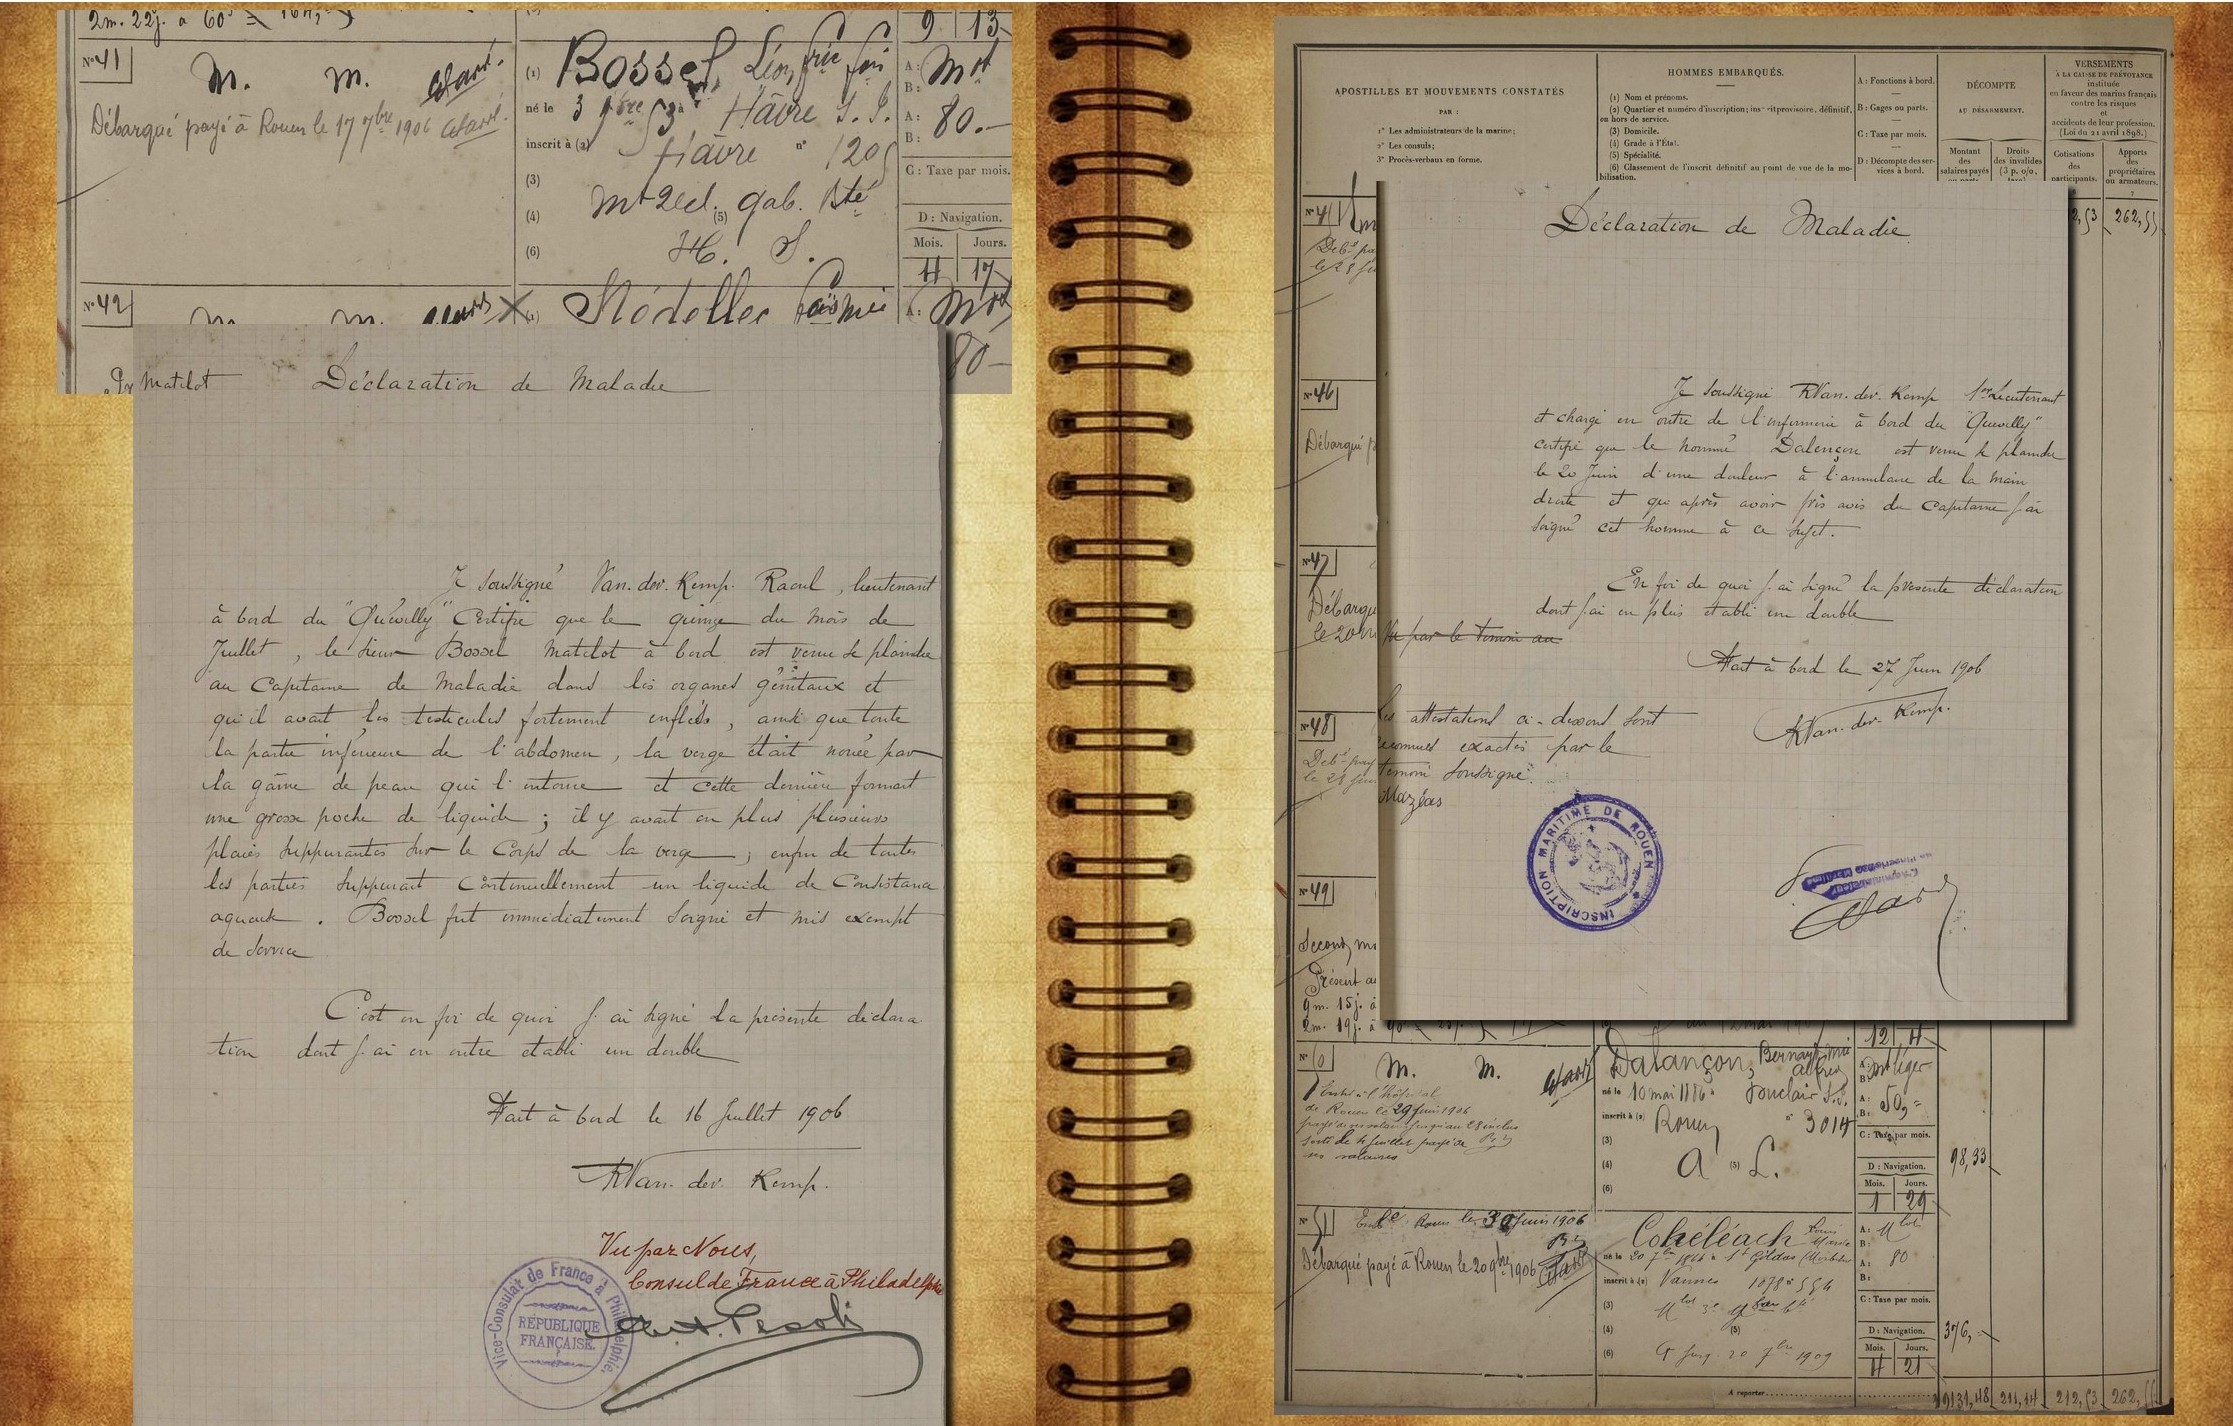 2m. 22j. à 60
9 13
N° 41
M. M.
Débarqué payé à Rouen le 17 7bre 1906
(1) Bossel, Léon
né le 3 Hâvre S. I.
inscrit à (2) Hâvre n° 1205
(3)
(4) Mt 2e cl. (5) gab. Bté
(6) H. S.
A: Mot
B:
A: 80.-
B:
C : Taxe par mois.
D : Navigation.
Mois. Jours.
11 17
N° 42
M. M.
80 -
Matelot Déclaration de Maladie
Je soussigné Van.der.Kemp. Raoul, lieutenant
à bord du "Quévilly" Certifie que le quinze du mois de
Juillet, le sieur Bossel Matelot à bord est venu se plaindre
au Capitaine de Maladie dans les organes génitaux et
qu'il avait les testicules fortement enflés, ainsi que toute
la partie inférieure de l'abdomen, la verge était nouée par
la gâine de peau qui l'entoure et cette dernière formait
une grosse poche de liquide ; il y avait en plus plusieurs
plaies suppurantes sur le Corps de la verge ; enfin de toutes
les parties suppurait continuellement un liquide de Consistance
aqueuse. Bossel fut immédiatement soigné et mis exempt
de service
C'est en foi de quoi j'ai signé la présente déclara
tion dont j'ai en outre établi un double
Fait à bord le 16 Juillet 1906
RVan. der. Kemp.
Vu par Nous,
Consul de France à Philadelphie
Vice-Consulat de France à Philadelphie.
RÉPUBLIQUE
FRANÇAISE.
APOSTILLES ET MOUVEMENTS CONSTATÉS
PAR :
1° Les administrateurs de la marine;
2° Les consuls;
3° Procès-verbaux en forme.
HOMMES EMBARQUÉS.
(1) Nom et prénoms.
(2) Quartier et numéro d'inscription; inscrit provisoire, définitif,
ou hors de service.
(3) Domicile.
(4) Grade à l'État.
(5) Spécialité.
(6) Classement de l'inscrit définitif au point de vue de la mo-
bilisation.
A : Fonctions à bord.
B : Gages ou parts.
C : Taxe par mois.
D : Décompte des ser-
vices à bord.
DÉCOMPTE
AU DÉSARMEMENT.
Montant
des
salaires payés
Droits
des invalides
(3 p. 0/0.
VERSEMENTS
À LA CAISSE DE PRÉVOYANCE
instituée
en faveur des marins français
contre les risques
et
accidents de leur profession.
(Loi du 21 avril 1898.)
Cotisations
des
participants.
Apports
des
propriétaires
ou armateurs.
262,55
Déclaration de Maladie
Je soussigné RVan.der.Kemp 1er Lieutenant
et chargé en outre de l'infirmerie à bord du "Quevilly"
certifie que le nommé Dalençon est venu se plaindre
le 20 Juin d'une douleur à l'annulaire de la main
droite et que après avoir pris avis du Capitaine j'ai
soigné cet homme à ce sujet.
En foi de quoi j'ai signé la présente déclaration
dont j'ai en plus établi un double
Vu par le témoin au
Fait à bord le 27 Juin 1906
RVan. der. Kemp.
Les attestations ci-dessous sont
reconnues exactes par le
témoin soussigné.
Mazéas
INSCRIPTION MARITIME DE ROUEN
N° 46
Débarqué
N° 47
Débarqué
le 20
N° 48
N° 49
Second
Présent
9m. 15j. à
2m. 19j. à
12 11
M. M.
Entré à l'hôpital
de Rouen le 29 juin 1906
ses salaires
Dalançon,
né le 10 mai 1886 à S.I.
inscrit à (2) Rouen n° 3014
(3)
(4) A (5) L.
(6)
A: Mt léger
B:
A: 50,=
B:
C : Taxe par mois.
D : Navigation.
Mois. Jours.
1 29
98,33
N° 51
Rouen le 30 Juin 1906
Débarqué payé à Rouen le 20 9bre 1906
Cokéléach Louis Marie
né le 20 7bre à St Gildas
inscrit à (2) Vannes
(3)
(4) (5)
(6) 20 7bre 1909
A: Mlot
B:
A: 80
B:
C : Taxe par mois.
D : Navigation.
Mois. Jours.
4 21
376,=
A reporter
9131,48 211,14 212,53 262,55